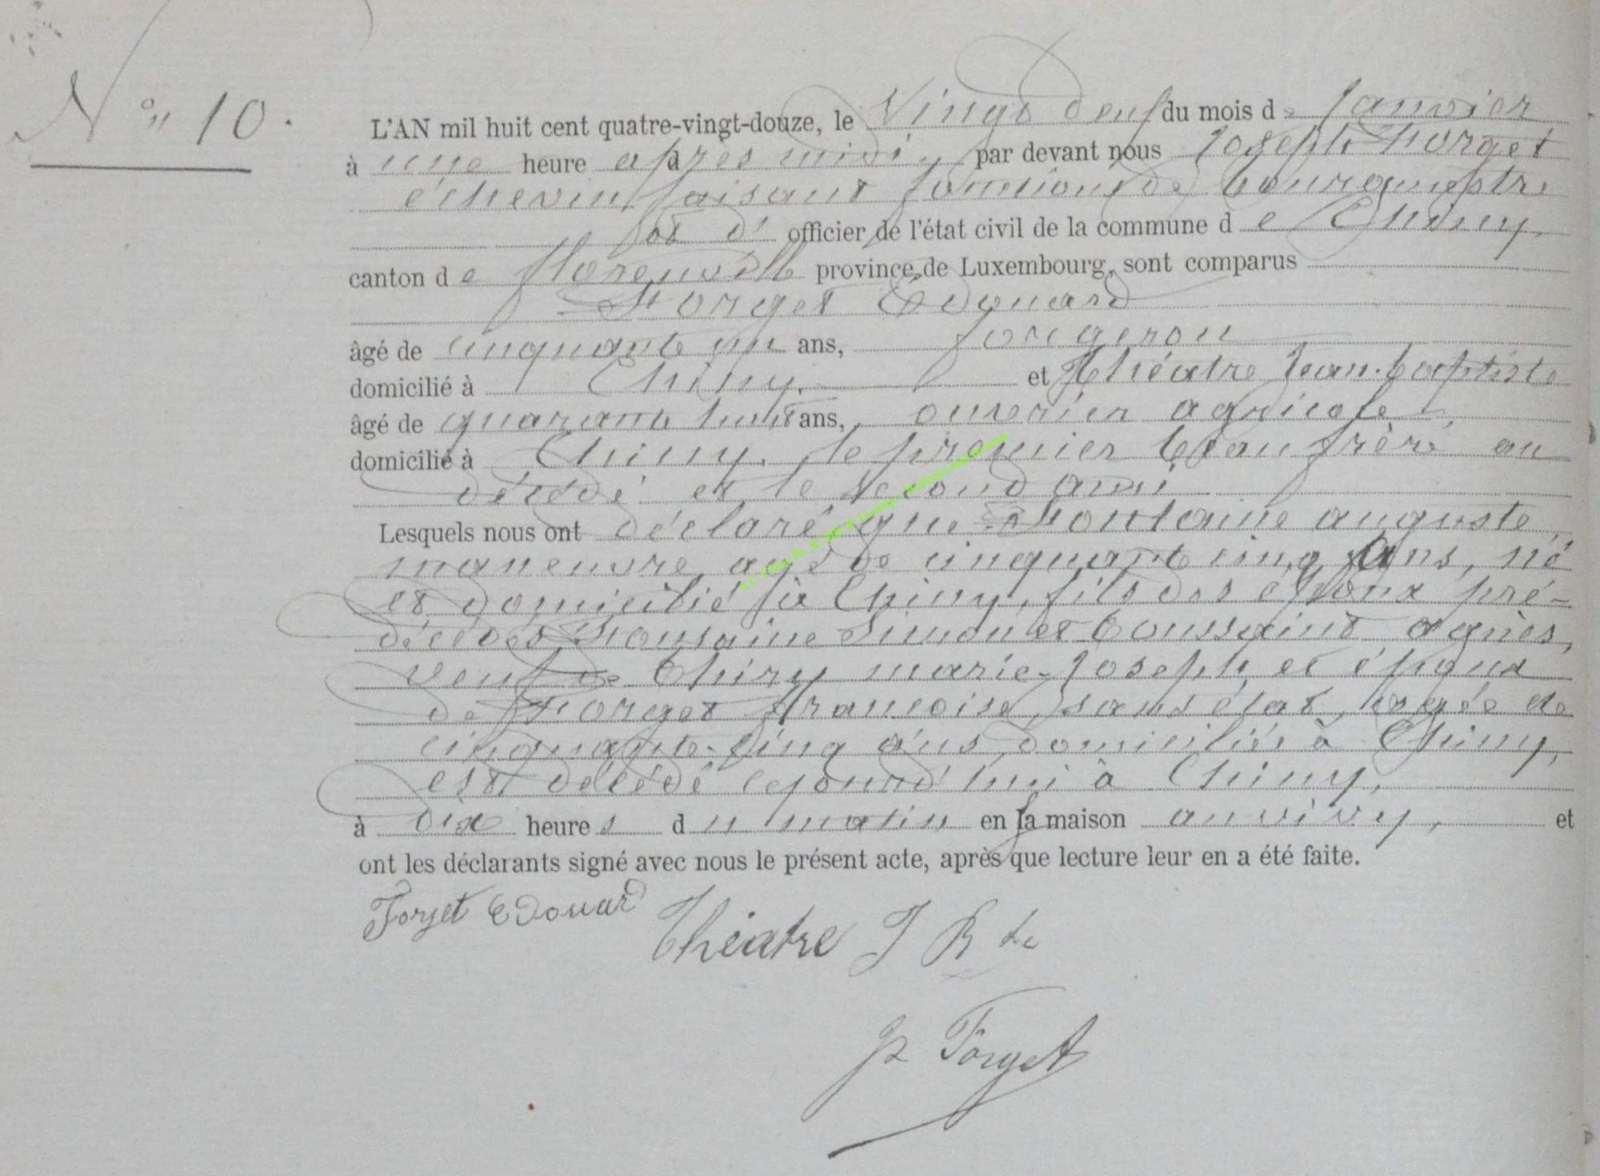 N° 10.
L'AN mil huit cent quatre-vingt-douze, le Vingt deuf du mois de Janvier
à une heure après midi, par devant nous Joseph Forget
échevin faisant fonctions de bourgmestre
et d' officier de l'état civil de la commune de Chiny,
canton de florenville province de Luxembourg, sont comparus
Forget Edouard
âgé de cinquante un ans, forgeron
domicilié à Chiny, et Théatre Jean-baptiste
âgé de quarante huit ans, ouvrier agricole,
domicilié à Chiny, le premier beau frère au
décédé et le second ami
Lesquels nous ont déclaré que Fontaine auguste,
maneuvre, agé de cinquante cinq ans, né
et domicilié à Chiny, fils des époux pré-
décédés Fontaine Simon et Toussaint agnès,
veuf de Thiry marie-Joseph, et époux
de Forget Francoise, sans état, agée de
cinquante-cinq ans, domiciliée à Chiny,
est décédé cejourd'hui à Chiny,
à dix heures du matin en sa maison et
ont les déclarants signé avec nous le présent acte, après que lecture leur en a été faite.
Forget Edouard
Théatre J Bte
J Forget